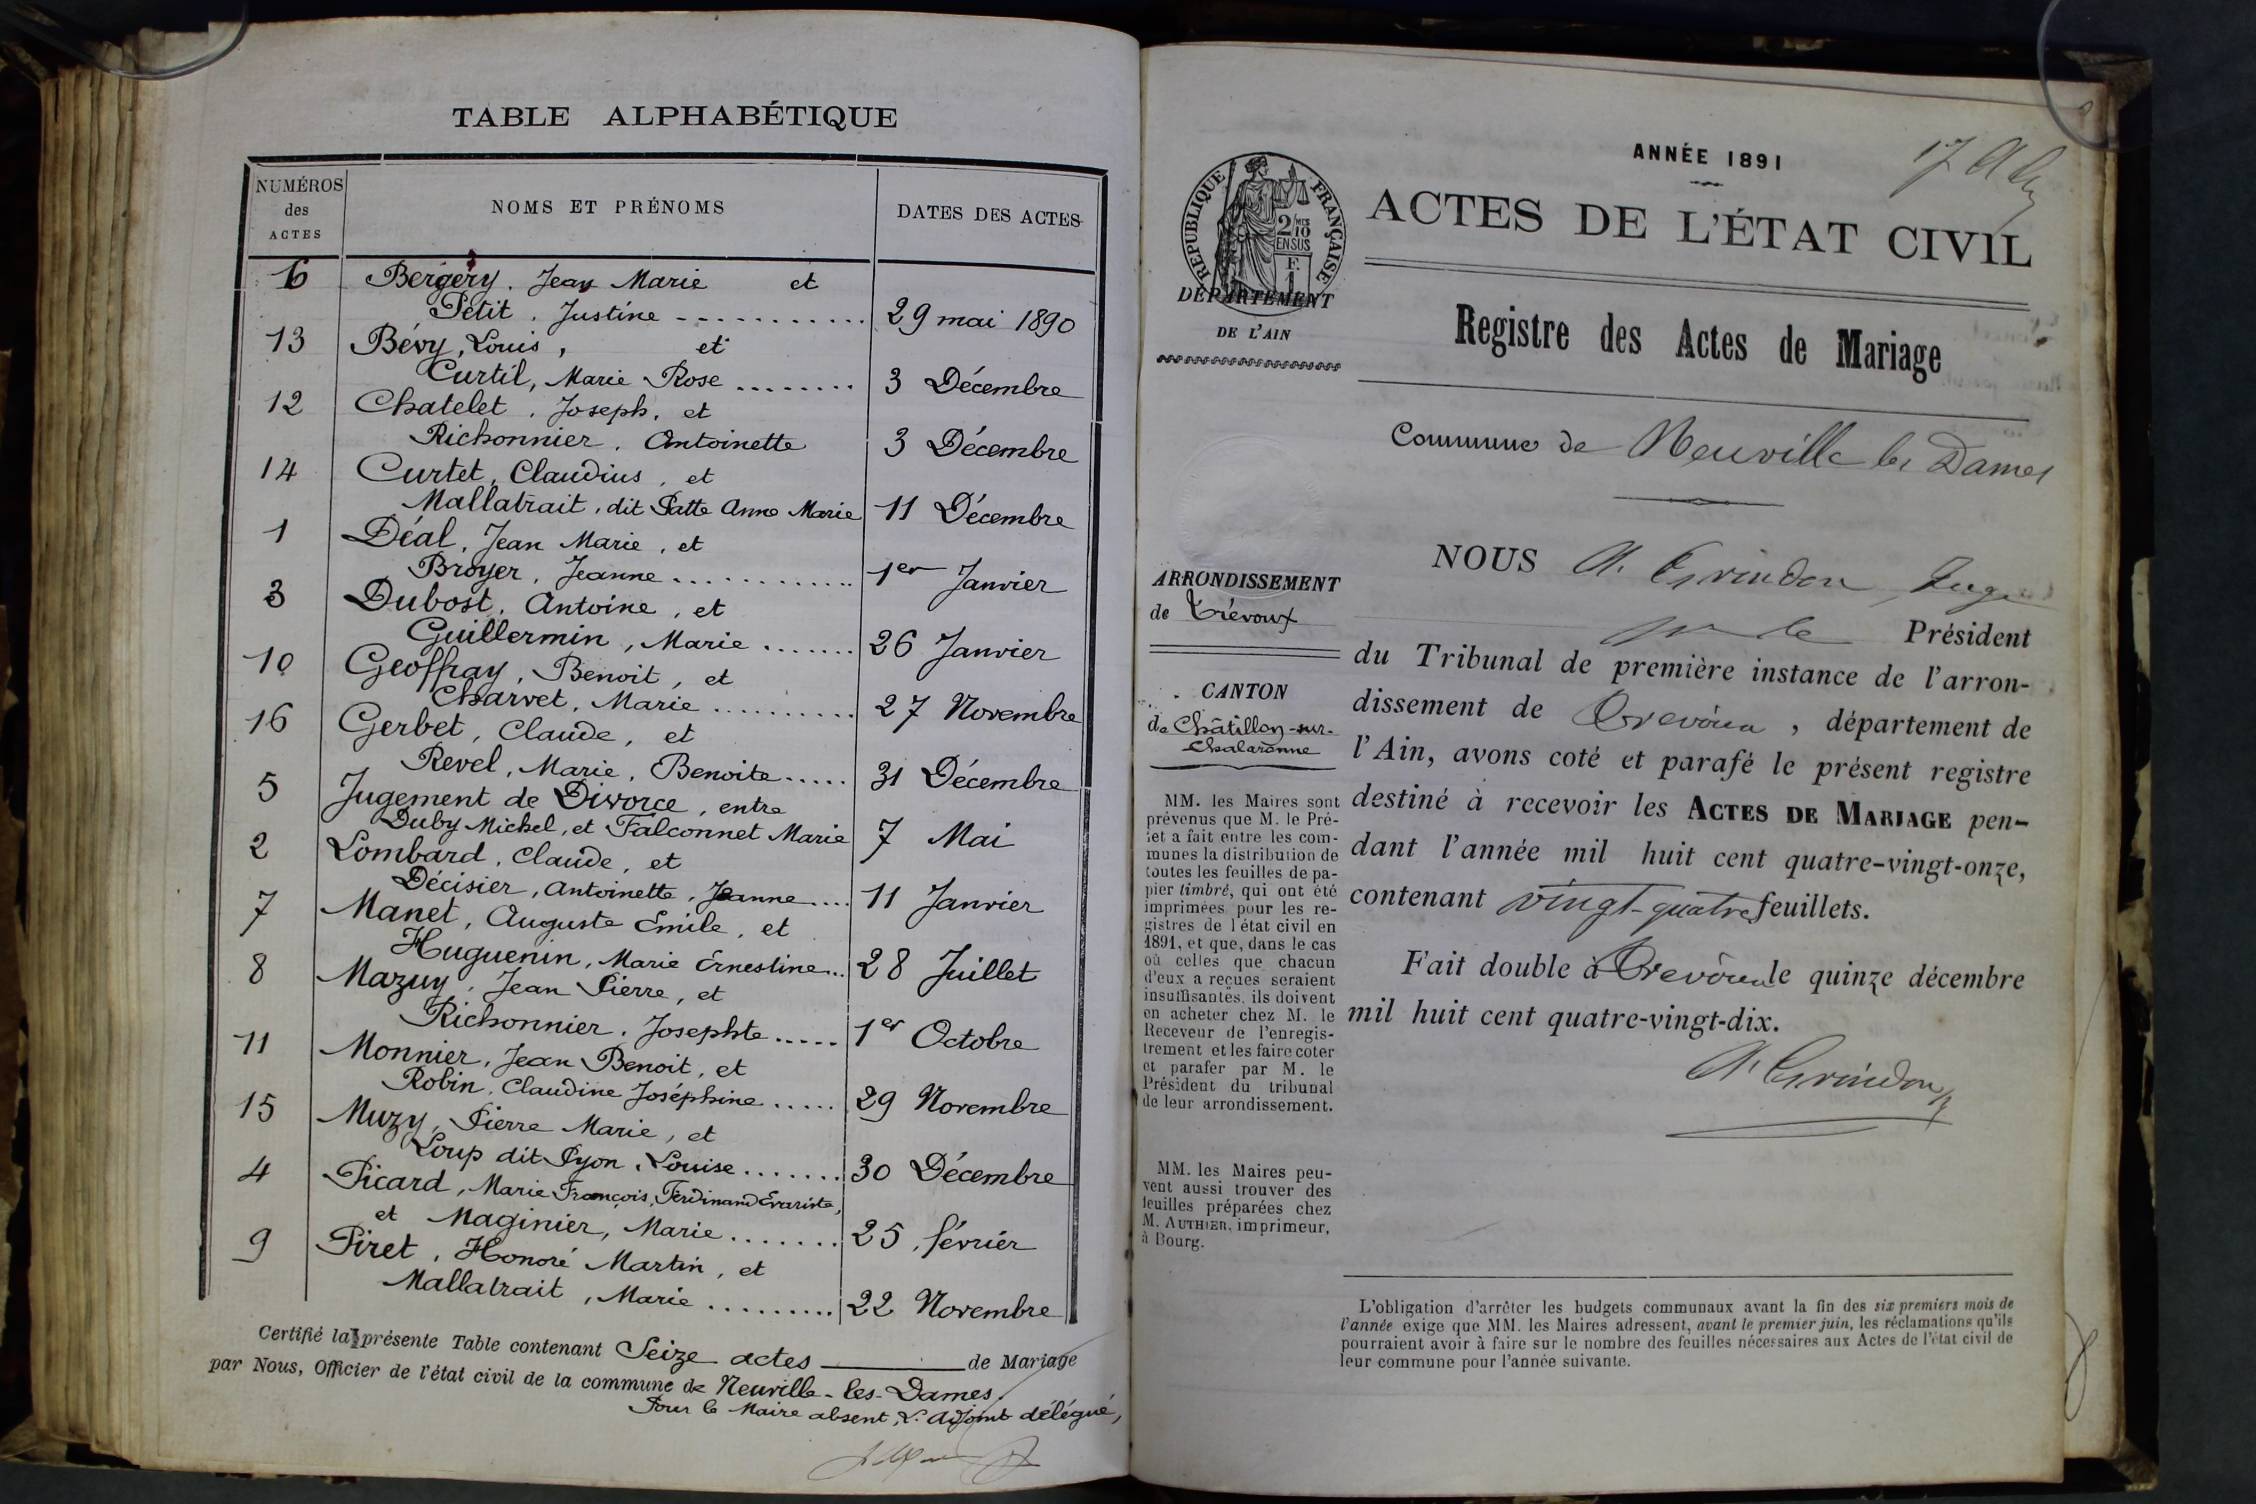 TABLE ALPHABÉTIQUE
NUMÉROS des ACTES
NOMS ET PRÉNOMS
DATES DES ACTES
6 Bergery, Jean Marie et
Petit, Justine 29 mai 1890
13 Bévy, Louis, et
Curtil, Marie Rose 3 Décembre
12 Chatelet, Joseph, et
Richonnier, Antoinette 3 Décembre
14 Curtet, Claudius, et
Mallatrait, dit Patte Anne Marie 11 Décembre
1 Déal, Jean Marie, et
Broyer, Jeanne 1er Janvier
3 Dubost, Antoine, et
Guillermin, Marie 26 Janvier
10 Geoffray, Benoit, et
Charvet, Marie 27 Novembre
16 Gerbet, Claude, et
Revel, Marie, Benoite 31 Décembre
5 Jugement de Divorce, entre
Duby Michel, et Falconnet Marie 7 Mai
2 Lombard, Claude, et
Décisier, Antoinette, Jeanne 11 Janvier
7 Manet, Auguste Emile, et
Huguenin, Marie Ernestine 28 Juillet
8 Mazuy, Jean Pierre, et
Richonnier, Josephte 1er Octobre
11 Monnier, Jean Benoit, et
Robin, Claudine Joséphine 29 Novembre
15 Muzy, Pierre Marie, et
Loup dit Pyon, Louise 30 Décembre
4 Picard, Marie François, Ferdinand Evariste,
et Maginier, Marie 25 février
9 Piret, Honoré Martin, et
Mallatrait, Marie 22 Novembre
Certifié la présente Table contenant Seize actes de Mariage
par Nous, Officier de l'état civil de la commune de Neuville-les-Dames.
Pour le Maire absent, L'adjoint délégué,
ANNÉE 1891
RÉPUBLIQUE FRANÇAISE
2/10 EN SUS
F. 1
DÉPARTEMENT
DE L'AIN
ACTES DE L'ÉTAT CIVIL
Registre des Actes de Mariage
Commune de Neuville les Dames
ARRONDISSEMENT
de Trévoux
CANTON
de Châtillon-sur-
Chalaronne
MM. les Maires sont
prévenus que M. le Pré-
fet a fait entre les com-
munes la distribution de
toutes les feuilles de pa-
pier timbré, qui ont été
imprimées pour les re-
gistres de l'état civil en
1891, et que, dans le cas
où celles que chacun
d'eux a reçues seraient
insuffisantes, ils doivent
en acheter chez M. le
Receveur de l'enregis-
trement et les faire coter
et parafer par M. le
Président du tribunal
de leur arrondissement.
MM. les Maires peu-
vent aussi trouver des
feuilles préparées chez
M. AUTHIER, imprimeur,
à Bourg.
NOUS A. Grindon, Juge
pr le Président
du Tribunal de première instance de l'arron-
dissement de Trévoux, département de
l'Ain, avons coté et parafé le présent registre
destiné à recevoir les ACTES DE MARIAGE pen-
dant l'année mil huit cent quatre-vingt-onze,
contenant vingt-quatre feuillets.
Fait double à Trévoux le quinze décembre
mil huit cent quatre-vingt-dix.
A. Grindon
L'obligation d'arrêter les budgets communaux avant la fin des six premiers mois de
l'année exige que MM. les Maires adressent, avant le premier juin, les réclamations qu'ils
pourraient avoir à faire sur le nombre des feuilles nécessaires aux Actes de l'état civil de
leur commune pour l'année suivante.